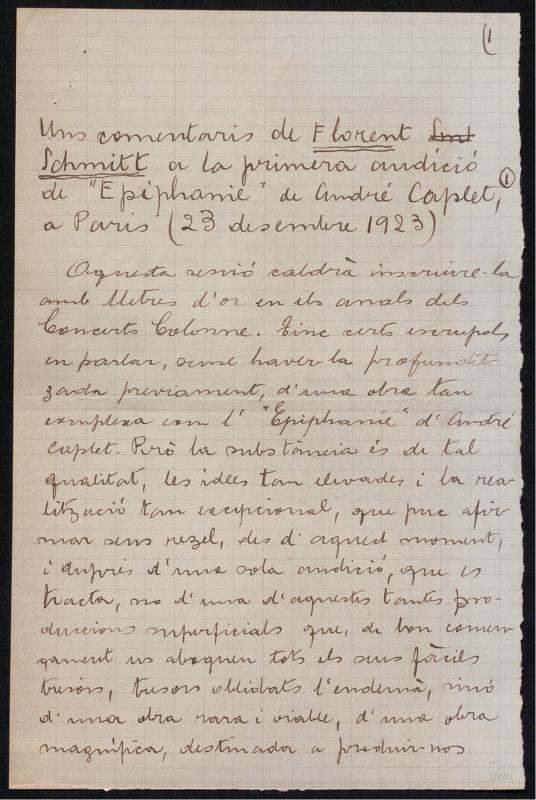 (1
Uns comentaris de Florent Smt
Schmitt a la primera audició
de "Epiphanie" de André Caplet, (1)
a Paris (23 desembre 1923)
Aquesta sessió caldrà inscriure-la
amb lletres d'or en els anals dels
Concerts Colonne. Tinc certs escrúpols
en parlar, sense haver-la profundit-
zada previament, d'una obra tan
complexa com l' "Epiphanie" d'André
Caplet. Però la substància és de tal
qualitat, les idees tan elevades i la rea-
lització tan excepcional, que puc afir-
mar sens rezel, des d'aquest moment,
i després d'una sola audició, que es
tracta, no d'una d'aquestes tantes pro-
duccions superficials que, de bon comen-
çament us aboquen tots els seus fàcils
tresors, tresors oblidats l'endemà, sinó
d'una obra rara i viable, d'una obra
magnífica, destinada a produir-nos